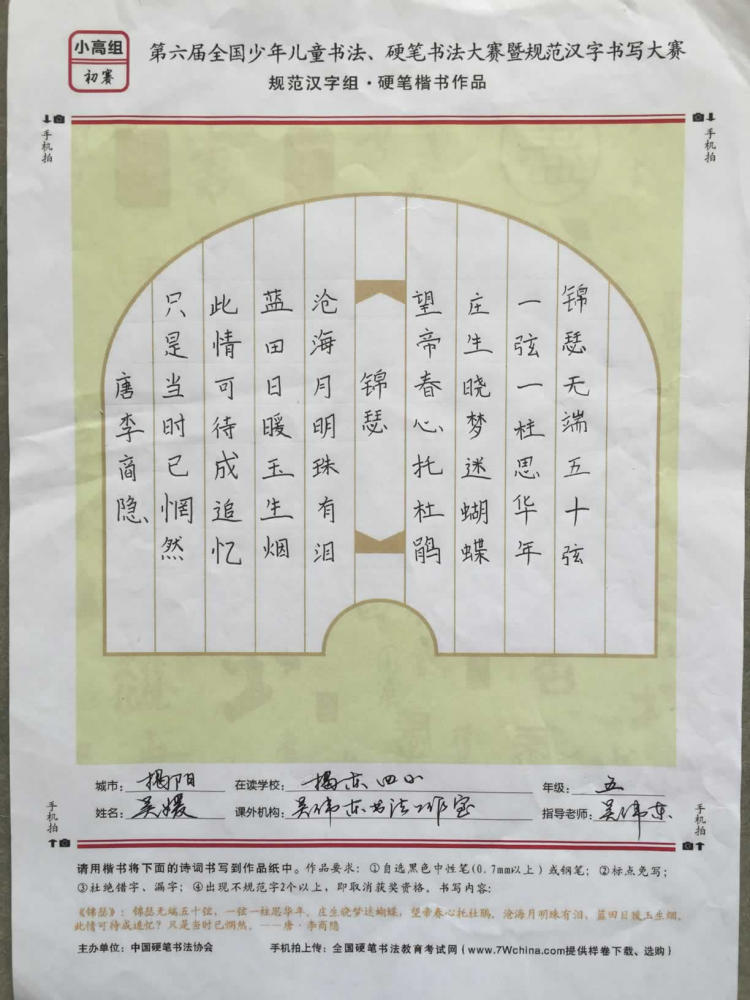 小高组
初赛
第六届全国少年儿童书法、硬笔书法大赛暨规范汉字书写大赛
规范汉字组·硬笔楷书作品
手机拍
手机拍
锦瑟无端五十弦
一弦一柱思华年
庄生晓梦迷蝴蝶
望帝春心托杜鹃
锦瑟
沧海月明珠有泪
蓝田日暖玉生烟
此情可待成追忆
只是当时已惘然
唐李商隐
城市：揭阳 在读学校：揭东四小 年级：五
姓名：吴媛 课外机构：吴伟东书法工作室 指导老师：吴伟东
手机拍
手机拍
请用楷书将下面的诗词书写到作品纸中。作品要求：①自选黑色中性笔(0.7mm以上)或钢笔；②标点免写；
③杜绝错字、漏字；④出现不规范字2个以上，即取消获奖资格。书写内容：
《锦瑟》：锦瑟无端五十弦，一弦一柱思华年。庄生晓梦迷蝴蝶，望帝春心托杜鹃。沧海月明珠有泪，蓝田日暖玉生烟。
此情可待成追忆？只是当时已惘然。——唐·李商隐
主办单位：中国硬笔书法协会 手机拍上传：全国硬笔书法教育考试网（www.7Wchina.com提供样卷下载、选购）